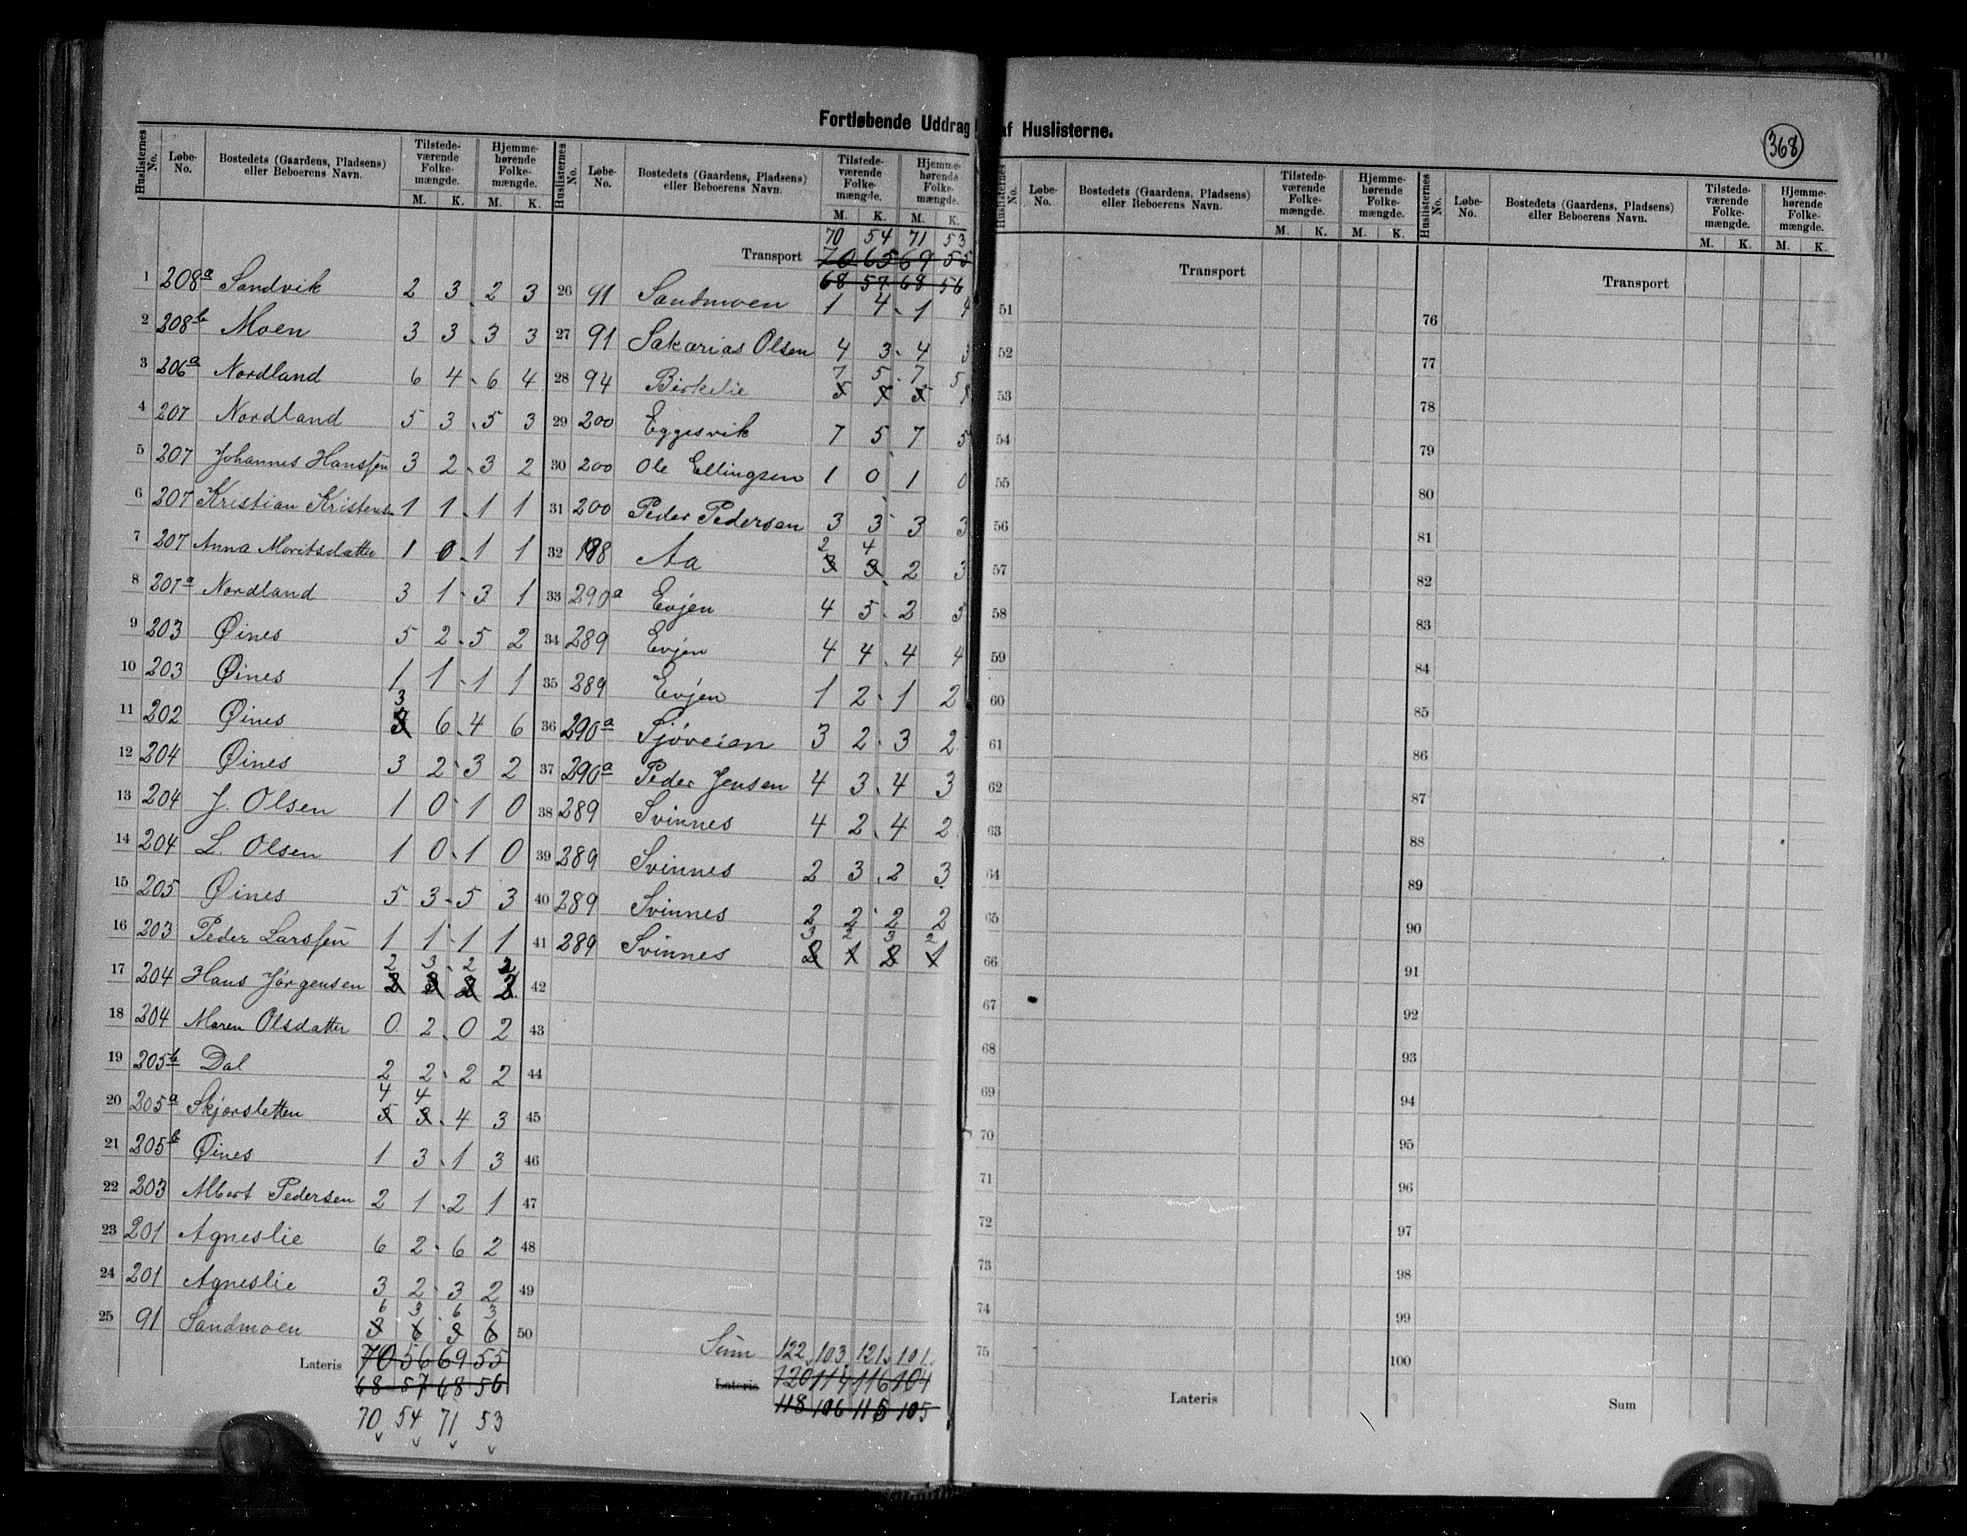 Fortløbende Uddrag af Huslisterne.
368
Huslisternes No. | Løbe-No. | Bostedets (Gaardens, Pladsens) eller Beboerens Navn. | Tilstedeværende Folkemængde. M. K. | Hjemmehørende Folkemængde. M. K.
1 208a Sandvik 2 3 2 3
2 208b Moen 3 3 3 3
3 206a Nordland 6 4 6 4
4 207 Nordland 5 3 5 3
5 207 Johannes Hanssen 3 2 3 2
6 207 Kristian Kristens. 1 1 1 1
7 207 Anna Moritsdatter 1 0 1 1
8 207a Nordland 3 1 3 1
9 203 Øines 5 2 5 2
10 203 Øines 1 1 1 1
11 202 Øines 3 6 4 6
12 204 Øines 3 2 3 2
13 204 J. Olsen 1 0 1 0
14 204 L. Olsen 1 0 1 0
15 205 Øines 5 3 5 3
16 203 Peder Larssen 1 1 1 1
2 3 2 2
17 204 Hans Jørgensen
18 204 Maren Olsdatter 0 2 0 2
19 205b Dal 2 2 2 2
4 4
20 205a Skjorsletten 5 3 4 3
21 205b Øines 1 3 1 3
22 203 Albert Pedersen 2 1 2 1
23 201 Agneslie 6 2 6 2
24 201 Agneslie 3 2 3 2
6 3 6 3
25 91 Sandmoen 3 6 3 6
Lateris 70 56 69 55
68 57 68 56
70 54 71 53
Huslisternes No. | Løbe-No. | Bostedets (Gaardens, Pladsens) eller Beboerens Navn. | Tilstedeværende Folkemængde. M. K. | Hjemmehørende Folkemængde. M. K.
70 54 71 53
Transport 70 65 69 55
68 57 68 56
26 91 Sandmoen 1 4 1 4
27 91 Sakarias Olsen 4 3 4 3
7 5 7 5
28 94 Birkelie
29 200 Eggesvik 7 5 7 5
30 200 Ole Ellingsen 1 0 1 0
31 200 Peder Pedersen 3 3 3 3
2 4
32 198 Aa 3 3 2 3
33 290a Evjen 4 5 2 5
34 289 Evjen 4 4 4 4
35 289 Evjen 1 2 1 2
36 290a Sjøveien 3 2 3 2
37 290a Peder Jensen 4 3 4 3
38 289 Svinnes 4 2 4 2
39 289 Svinnes 2 3 2 3
40 289 Svinnes 2 2 2 2
3 2 3 2
41 289 Svinnes 2 1 2 1
42
43
44
45
46
47
48
49
50
Sum 122 103 121 101
Lateris 120 114 116 104
118 106 115 105
Huslisternes No. | Løbe-No. | Bostedets (Gaardens, Pladsens) eller Beboerens Navn. | Tilstedeværende Folkemængde. M. K. | Hjemmehørende Folkemængde. M. K.
Transport
51
52
53
54
55
56
57
58
59
60
61
62
63
64
65
66
67
68
69
70
71
72
73
74
75
Lateris
Huslisternes No. | Løbe-No. | Bostedets (Gaardens, Pladsens) eller Beboerens Navn. | Tilstedeværende Folkemængde. M. K. | Hjemmehørende Folkemængde. M. K.
Transport
76
77
78
79
80
81
82
83
84
85
86
87
88
89
90
91
92
93
94
95
96
97
98
99
100
Sum